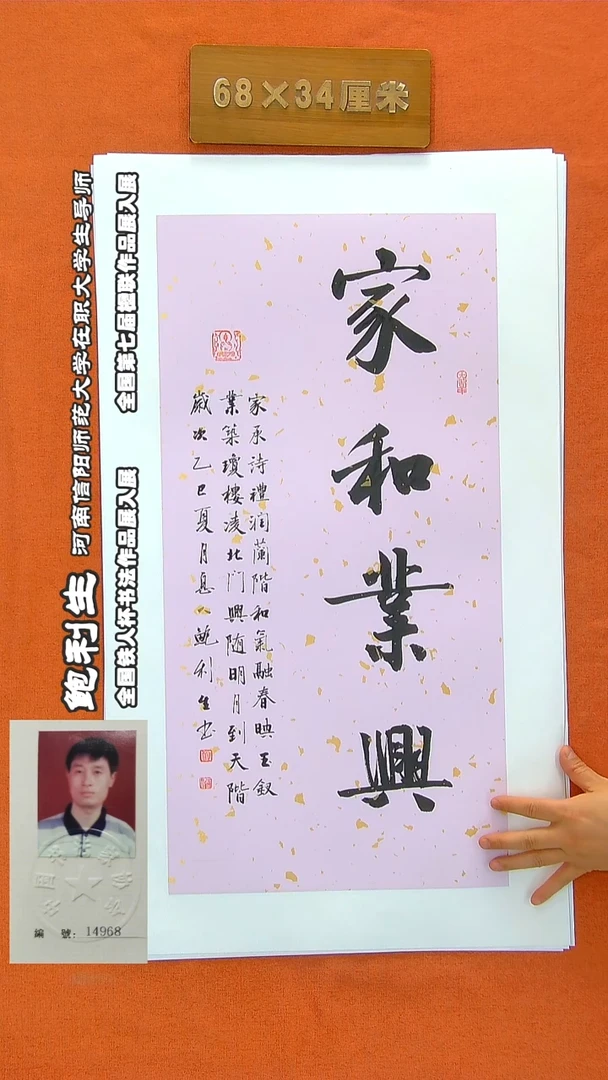 68×34厘米
家和業興
家承诗禮润蘭階和氣融春映玉釵
業築瓊樓凌北門興随明月到天階
歲次乙巳夏月息人鲍利生书
鲍利生 河南信阳师范大学在职大学生导师
全国铁人杯书法作品展入展 全国第七届楹联作品展入展
編 號：14968